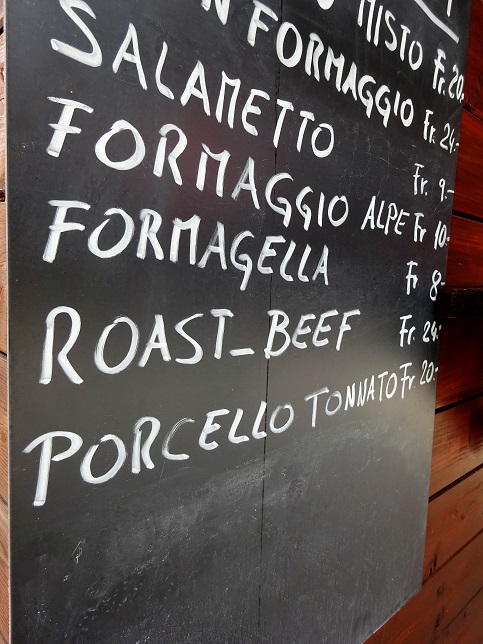 MISTO Fr. 20.
FORMAGGIO Fr. 24.-
SALAMETTO Fr. 9.-
FORMAGGIO ALPE Fr 10.-
FORMAGELLA Fr 8-
ROAST-BEEF Fr. 24.-
PORCELLO TONNATO Fr 20.-